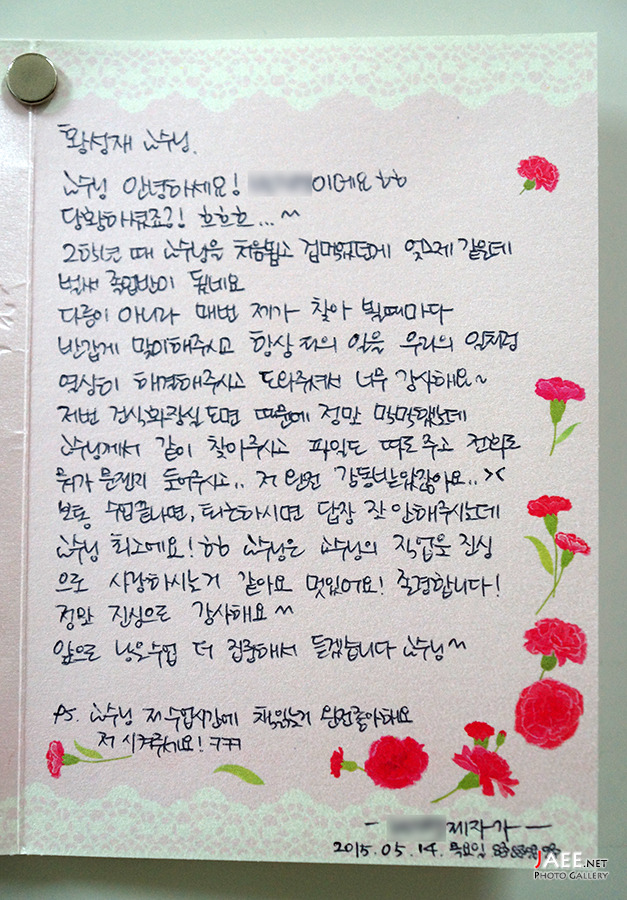 황성재 교수님.
교수님 안녕하세요! 이에요 ㅎㅎ
당황하셨죠?! ㅎㅎㅎ... ^^
2학년 때 교수님을 처음뵙고 겁먹었던게 엊그제 같은데
벌써 졸업반이 됐네요
다름이 아니라 매번 제가 찾아 뵐때마다
반갑게 맞이해주시고 항상 저의 일을 우리의 일처럼
열심히 해결해주시고 도와주셔서 너무 감사해요~
저번 건식화장실 도면 때문에 정말 막막했는데
교수님께서 같이 찾아주시고 파일도 따로 주고 전화로
뭐가 문젠지 물어주시고.. 저 완전 감동받았잖아요.. ><
보통 수업끝나면, 퇴근하시면 답장 잘 안해주시는데
교수님 최고에요! ㅎㅎ 교수님은 교수님의 직업을 진심
으로 사랑하시는거 같아요 멋있어요! 존경합니다!
정말 진심으로 감사해요 ^^
앞으로 남은수업 더 집중해서 듣겠습니다 교수님 ^^
PS. 교수님 저 수업시간에 책읽는거 완전좋아해요
저 시켜주세요! ㅋㅋㅋ
- 제자가 -
2015.05.14. 목요일
JAEE.NET
PHOTO GALLERY